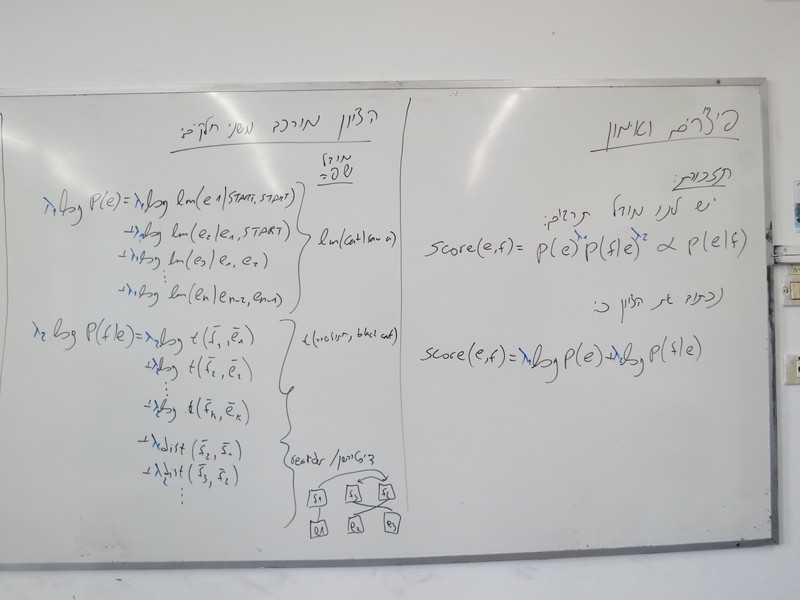 פיצ'רים ואימון
תזכורת:
יש לנו מודל תרגום:
score(e,f) = P(e)^λ₁ P(f|e)^λ₂ ∝ P(e|f)
נכתוב את הציון כ:
score(e,f) = λ₁ log P(e) + λ₂ log P(f|e)
הציון מורכב משני חלקים:
מודל
שפה=
λ₁ log P(e) = λ₁ log lm(e1|START, START)
+λ₁ log lm(e₂|e₁, START)
+λ₁ log lm(e3|e₁, e₂)
⋮
+λ₁ log lm(en|en-2, en-1)
lm(cat|saw a)
λ₂ log P(f|e) = λ₂ log t(f̄₁, ē₁)
+λ₂ log t(f̄₂, ē₂)
⋮
+λ₂ log t(f̄ₖ, ēₖ)
black cat)
+λ dist(f̄₂, f̄₁)
+λ₂ dist(f̄₃, f̄₂)
⋮
reorder / דיסטורשן
f1 f3 f2
e1 e2 e3